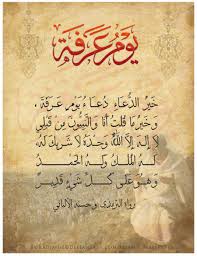 يَوْمُ عَرَفَة
خَيْرُ الدُّعَاءِ دُعَاءُ يَوْمِ عَرَفَةَ ،
وَخَيْرُ مَا قُلْتُ أَنَا وَالنَّبِيُّونَ مِنْ قَبْلِي
لَا إِلَهَ إِلَّا اللَّهُ وَحْدَهُ لَا شَرِيكَ لَهُ
لَهُ الْمُلْكُ وَلَهُ الْحَمْدُ
وَهُوَ عَلَى كُلِّ شَيْءٍ قَدِيرٌ
رواه الترمذي وحسنه الألباني